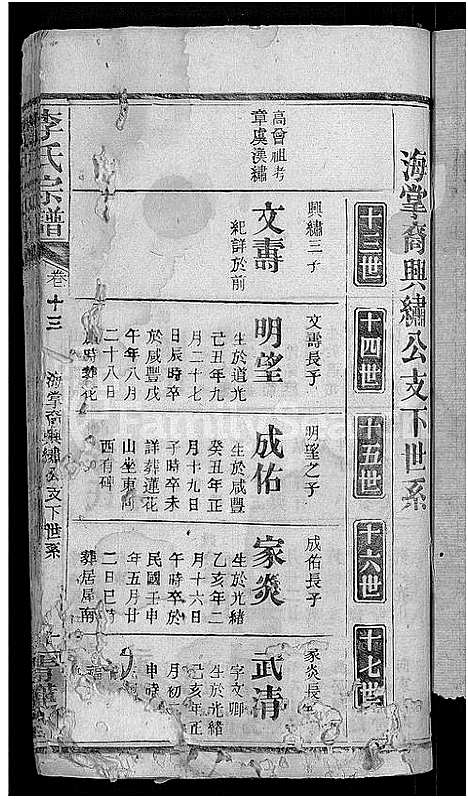 海堂裔興繡公支下世系
十三世
十四世
十五世
十六世
十七世
高曾祖考
章虞漢繡
興繡三子
文壽
紀詳於前
文壽長子
明望
生於道光
己丑年九
月二十七
日辰時卒
於咸豐戊
午年八月
二十八日
時葬花
明望之子
成佑
生於咸豐
癸丑年正
月十九日
子時卒未
詳葬蓮花
山坐東向
西有碑
成佑長子
家炎
生於光緒
乙亥年二
月十六日
午時卒於
民國壬申
年五月廿
二日巳時
葬居屋南
家炎長
武清
字文卿
生於光緒
己亥年正
月初
申時
李氏宗譜
卷十三
海堂裔興繡公支下世系